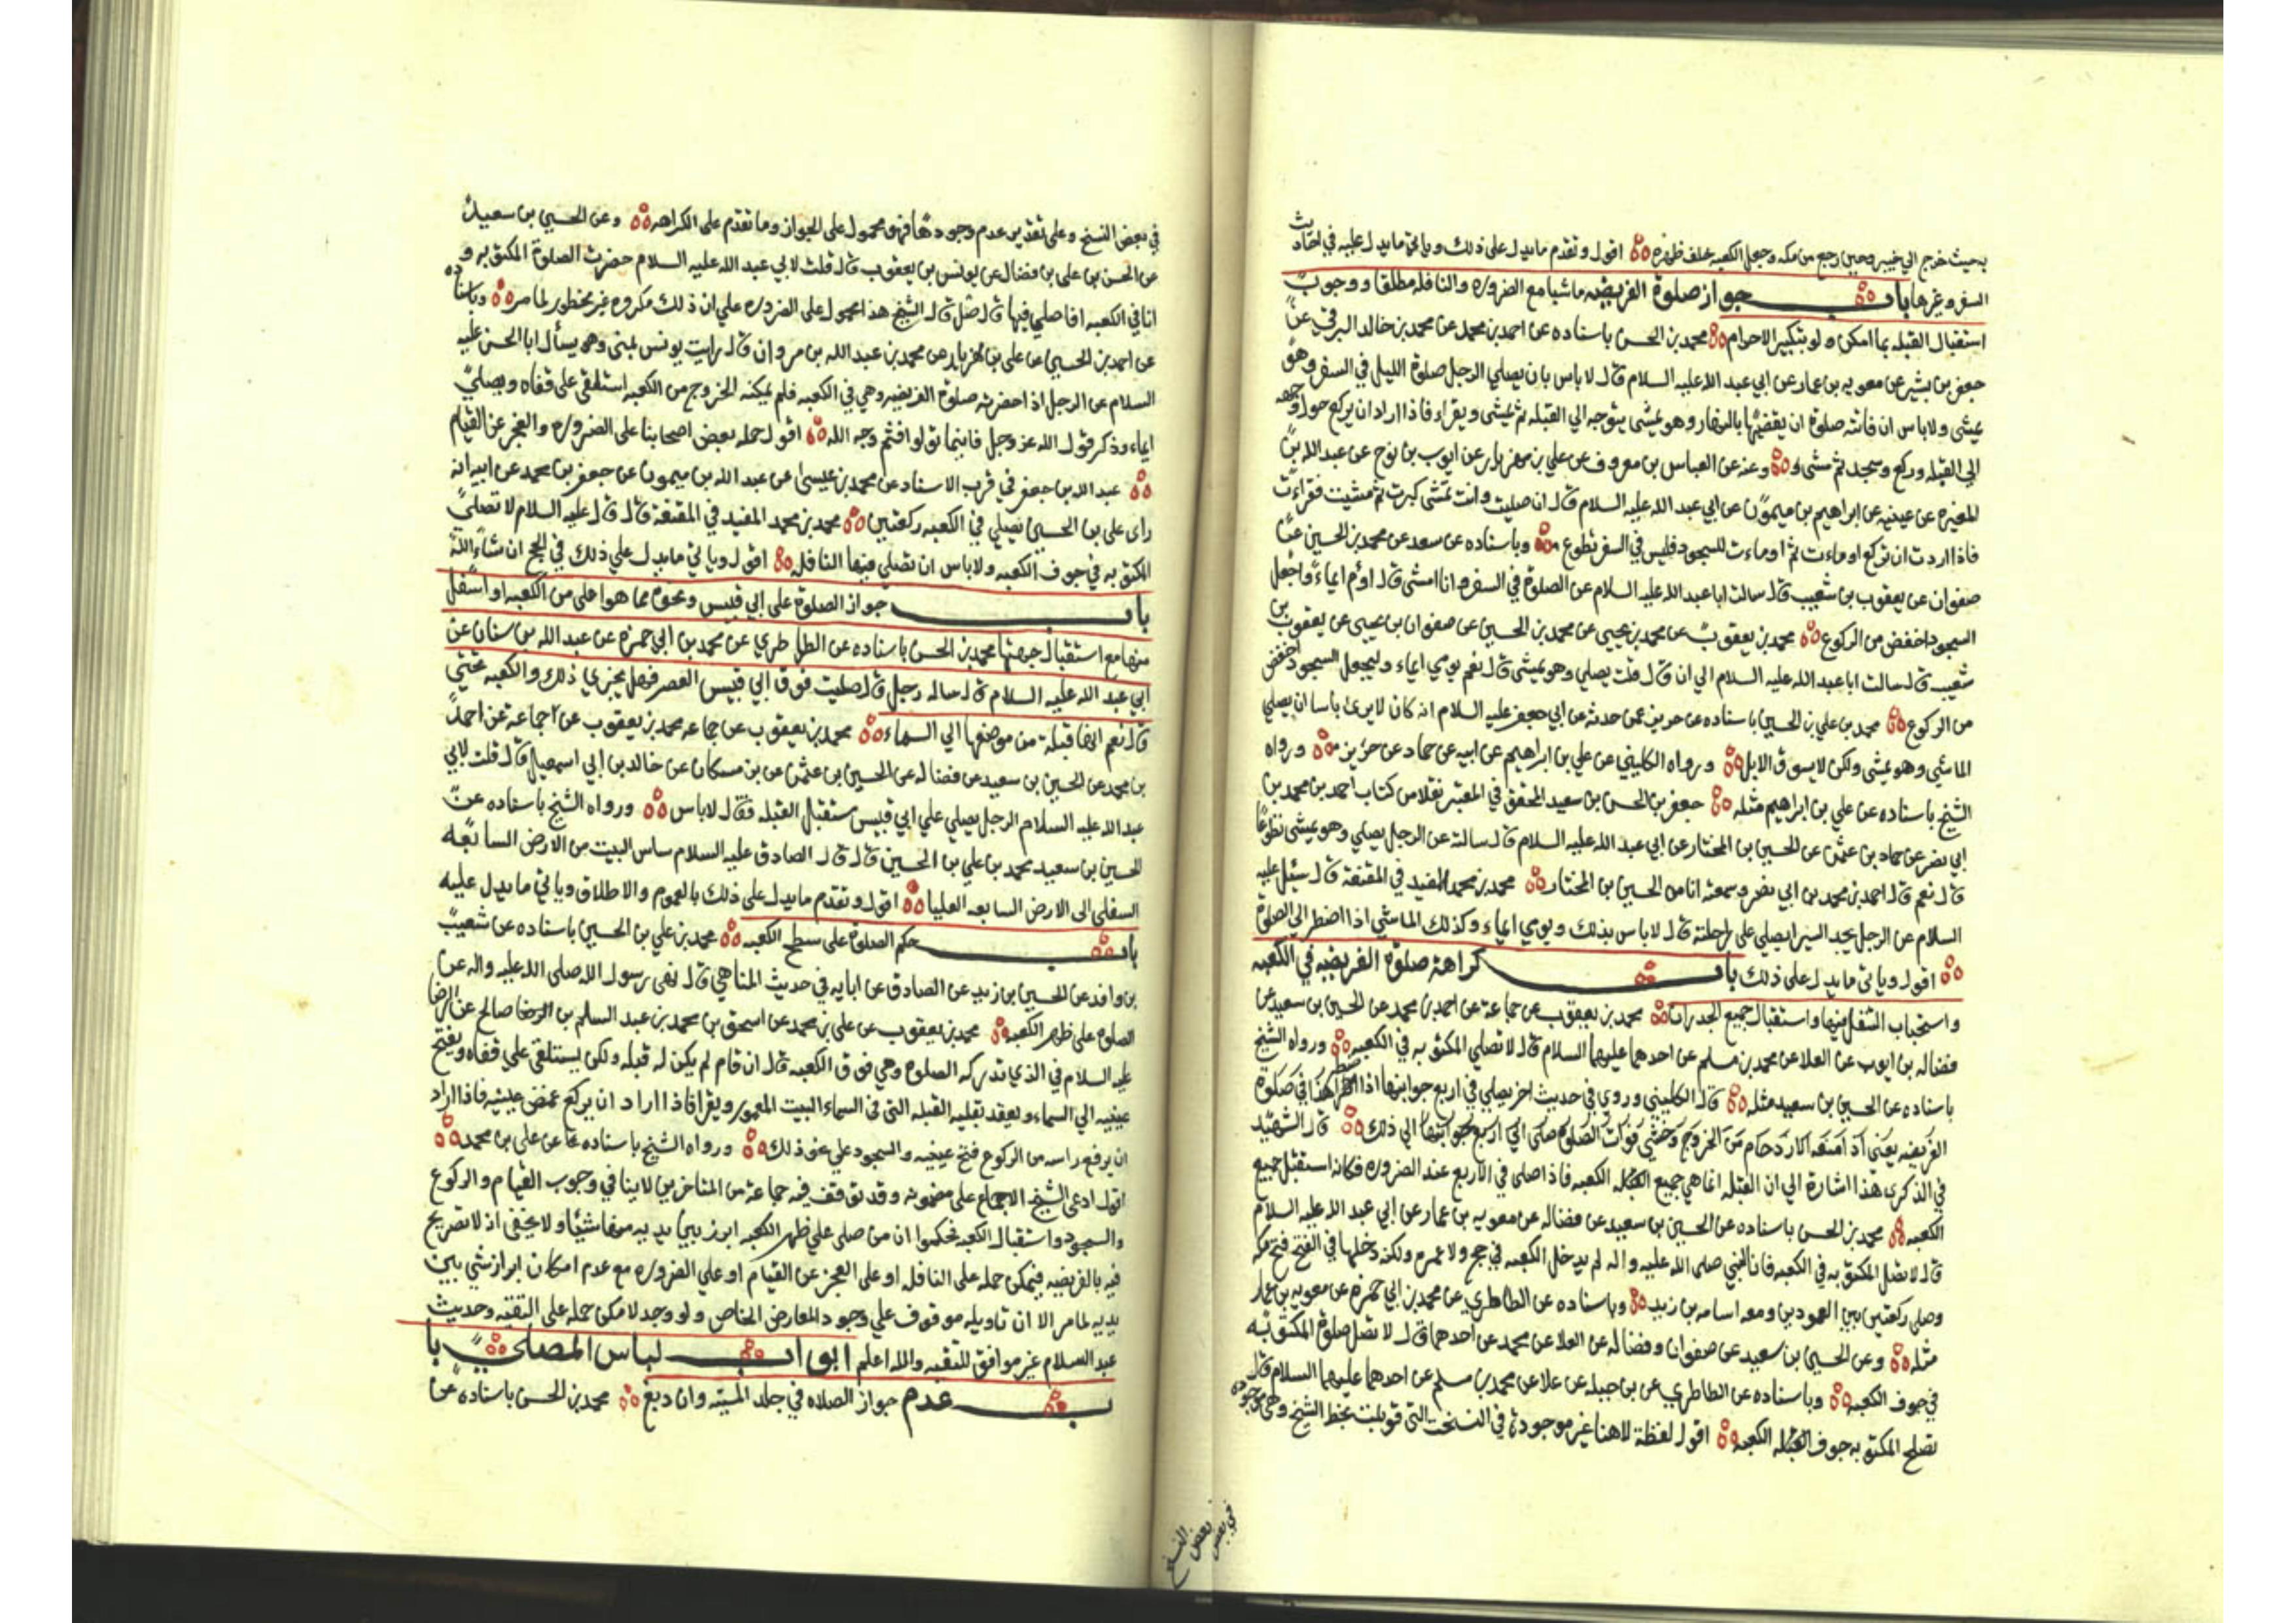 بحيث خرج الي خيبر وحين رجع من مكه وجعل الكعبه خلف ظهره اقول وتقدم مايدل على ذلك وياتي مايدل عليه في احاديث
السفر وغيرها باب جواز صلوة الفريضه ماشيا مع الضروره والنافله مطلقا ووجوب
استقبال القبله بما امكن ولو بتكبير الاحرام محمد بن الحسن باسناده عن احمد بن محمد عن محمد بن خالد البرقي عن
جعفر بن بشير عن معويه بن عمار عن ابي عبد الله عليه السلام قال لا باس بان يصلي الرجل صلوة الليل في السفر وهو
يمشى ولا باس ان فاتته صلوة ان يقضيها بالنهار وهو يمشى يتوجه الي القبله ثم يمشى ويقراء فاذا اراد ان يركع حول وجهه
الي القبله وركع وسجد ثم مشى وعنه عن العباس بن معروف عن علي بن مهزيار عن ايوب بن نوح عن عبد الله بن
المغيره عن عينيه عن ابراهيم بن ميمون عن ابي عبد الله عليه السلام قال ان صليت وانت تمشى كبرت ثم مشيت فقراءت
فاذا اردت ان تركع اوماءت ثم اوماءت للسجود فليس في السفر تطوع وباسناده عن سعد عن محمد بن الحسين عن
صفوان عن يعقوب بن شعيب قال سالت ابا عبد الله عليه السلام عن الصلوة في السفر وانا امشى قال اوم ايماء واجعل
السجود اخفض من الركوع محمد بن يعقوب عن محمد بن يحيى عن محمد بن الحسين عن صفوان بن يحيى عن يعقوب بن
شعيب قال سالت ابا عبد الله عليه السلام الي ان قال قلت يصلي وهو يمشى قال نعم يومي ايماء وليجعل السجود اخفض
من الركوع محمد بن علي بن الحسين باسناده عن حريز عمن حدثه عن ابي جعفر عليه السلام انه كان لا يرى باسا ان يصلي
الماشي وهو يمشي ولكن لا يسوق الابل ورواه الكليني عن علي بن ابراهيم عن ابيه عن حماد عن حريز ورواه
الشيخ باسناده عن علي بن ابراهيم مثله جعفر بن الحسن بن سعيد المحقق في المعتبر نقلا من كتاب احمد بن محمد بن
ابي نصر عن حماد بن عثمن عن الحسين بن المختار عن ابي عبد الله عليه السلام قال سالته عن الرجل يصلي وهو يمشى تطوعا
قال نعم قال احمد بن محمد بن ابي نصر وسمعته انا من الحسين بن المختار محمد بن محمد المفيد في المقنعة قال سئل عليه
السلام عن الرجل يجد السير ايصلي على راحلته قال لا باس بذلك ويومي ايماء وكذلك الماشي اذا اضطر الي الصلوة
اقول وياتي مايدل على ذلك باب كراهة صلوة الفريضه في الكعبه
واستحباب التنفل فيها واستقبال جميع الجدران محمد بن يعقوب عن جماعة عن احمد بن محمد عن الحسين بن سعيد عن
فضاله بن ايوب عن العلا عن محمد بن مسلم عن احدهما عليهما السلام قال لا تصلي المكتوبه في الكعبه ورواه الشيخ
باسناده عن الحسين بن سعيد مثله قال الكليني وروي في حديث اخر يصلي في اربع جوانبها اذا اضطر
الفريضه يعني اذ امنعه الازدحام من الخروج وخشي فوات الصلوة صلى الي اربع جوانبها الي ذلك قال الشهيد
في الذكرى هذا اشارة الي ان القبله انما هي جميع الكعبه فاذا صلى في الاربع عند الضروره فكانه استقبل جميع
الكعبه محمد بن الحسن باسناده عن الحسين بن سعيد عن فضاله عن معويه بن عمار عن ابي عبد الله عليه السلام
قال لا تصل المكتوبه في الكعبه فان النبي صلى الله عليه واله لم يدخل الكعبه في حج ولا عمره ولكنه دخلها في الفتح فتح مكه
وصلى ركعتين بين العمودين ومعه اسامه بن زيد وباسناده عن الطاطري عن محمد بن ابي حمزه عن معويه بن عمار
مثله وعن الحسين بن سعيد عن صفوان وفضاله عن العلا عن محمد عن احدهما قال لا تصل صلوة المكتوبه
في جوف الكعبه وباسناده عن الطاطري عن بن جبله عن علا عن محمد بن مسلم عن احدهما عليهما السلام قال
تصلح المكتوبه جوف الكعبه اقول لفظة لا هنا غير موجودة في النسخه التي قوبلت بخط الشيخ وهي موجوده
في بعض النسخ
في بعض النسخ وعلى تقدير عدم وجودها فهو محمول على الجواز وما تقدم على الكراهه وعن الحسين بن سعيد
عن الحسن بن علي بن فضال عن يونس بن يعقوب قال قلت لابي عبد الله عليه السلام حضرت الصلوة المكتوبه و
انا في الكعبه افاصلي فيها قال صل قال الشيخ هذا محمول على الضروره علي ان ذلك مكروه غير محظور لما مر وباسناده
عن احمد بن الحسين عن علي بن مهزيار عن محمد بن عبد الله بن مروان قال رايت يونس بمنى وهو يسأل ابا الحسن عليه
السلام عن الرجل اذا حضرته صلوة الفريضه وهي في الكعبه فلم يمكنه الخروج من الكعبه استلقى على قفاه ويصلي
ايماء وذكر قول الله عز وجل فاينما تولوا فثم وجه الله اقول حمله بعض اصحابنا على الضروره والعجز عن القيام
عبد الله بن جعفر في قرب الاسناد عن محمد بن عيسى عن عبد الله بن ميمون عن جعفر بن محمد عن ابيه انه
راى علي بن الحسين يصلي في الكعبه ركعتين محمد بن محمد المفيد في المقنعة قال قال عليه السلام لا تصلي
المكتوبه في جوف الكعبه ولا باس ان تصلي فيها النافله اقول وياتي مايدل علي ذلك في الحج ان شاء الله
باب جواز الصلوة على ابي قبيس ونحوه مما هو اعلى من الكعبه او اسفل
منها مع استقبال جهتها محمد بن الحسن باسناده عن الطاطري عن محمد بن ابي حمزه عن عبد الله بن سنان عن
ابي عبد الله عليه السلام قال ساله رجل قال صليت فوق ابي قبيس العصر فهل يجزي ذلك والكعبه تحتي
قال نعم انها قبلة من موضعها الي السماء محمد بن يعقوب عن جماعه عن احمد
بن محمد عن الحسين بن سعيد عن فضاله عن الحسين بن عثمن عن بن مسكان عن خالد بن ابي اسمعيل قال قلت لابي
عبد الله عليه السلام الرجل يصلي علي ابي قبيس مستقبل القبله فقال لا باس ورواه الشيخ باسناده عن
الحسين بن سعيد محمد بن علي بن الحسين قال قال الصادق عليه السلام ساس البيت من الارض السابعه
السفلى الى الارض السابعه العليا اقول وتقدم مايدل على ذلك بالعموم والاطلاق وياتي مايدل عليه
باب حكم الصلوة على سطح الكعبه محمد بن علي بن الحسين باسناده عن شعيب
بن واقد عن الحسين بن زيد عن الصادق عن ابايه في حديث المناهي قال نهى رسول الله صلى الله عليه واله عن
الصلوه على ظهر الكعبه محمد بن يعقوب عن علي بن محمد عن اسحق بن محمد عن عبد السلم بن صالح عن الرضا
عليه السلام في الذي تدركه الصلوه وهي فوق الكعبه قال ان قام لم يكن له قبله ولكن يستلقى على قفاه ويفتح
عينيه الي السماء ويعقد بقلبه القبله التي في السماء البيت المعمور ويقرا فاذا اراد ان يركع غمض عينيه فاذا اراد
ان يرفع راسه من الركوع فتح عينيه والسجود علي نحو ذلك ورواه الشيخ باسناده عن علي بن محمد
اقول ادعى الشيخ الاجماع على مضمونه وقد توقف فيه جماعة من المتاخرين لاينافي وجوب القيام والركوع
والسجود واستقبال الكعبه فحكموا ان من صلى علي ظهر الكعبه ابرز بين يديه منها شيئا ولا يخفى انه لا تصريح
فيه بالفريضه فيمكن حمله على النافله او على العجز عن القيام او علي الضروره مع عدم امكان ابراز شي بين
يديه لما مر الا ان تاويله موقوف علي وجود المعارض الخاص ولو وجد لامكن حمله على التقيه وحديث
عبد السلام غير موافق للتقيه والله اعلم ابواب لباس المصلي با
ب عدم جواز الصلاه في جلد الميته وان دبغ محمد بن الحسن باسناده عن